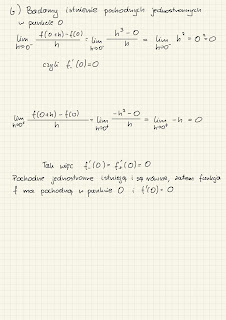 6) Badamy istnienie pochodnych jednostronnych
w punkcie 0
lim h→0⁻ f(0+h)-f(0)/h = lim h→0⁻ h³-0/h = lim h→0⁻ h² = 0² = 0
czyli f₋'(0)=0
lim h→0⁺ f(0+h)-f(0)/h = lim h→0⁺ -h²-0/h = lim h→0⁺ -h = 0
Tak więc f₋'(0) = f₊'(0) = 0
Pochodne jednostronne istnieją i są równe, zatem funkcja
f ma pochodną w punkcie 0 i f'(0) = 0